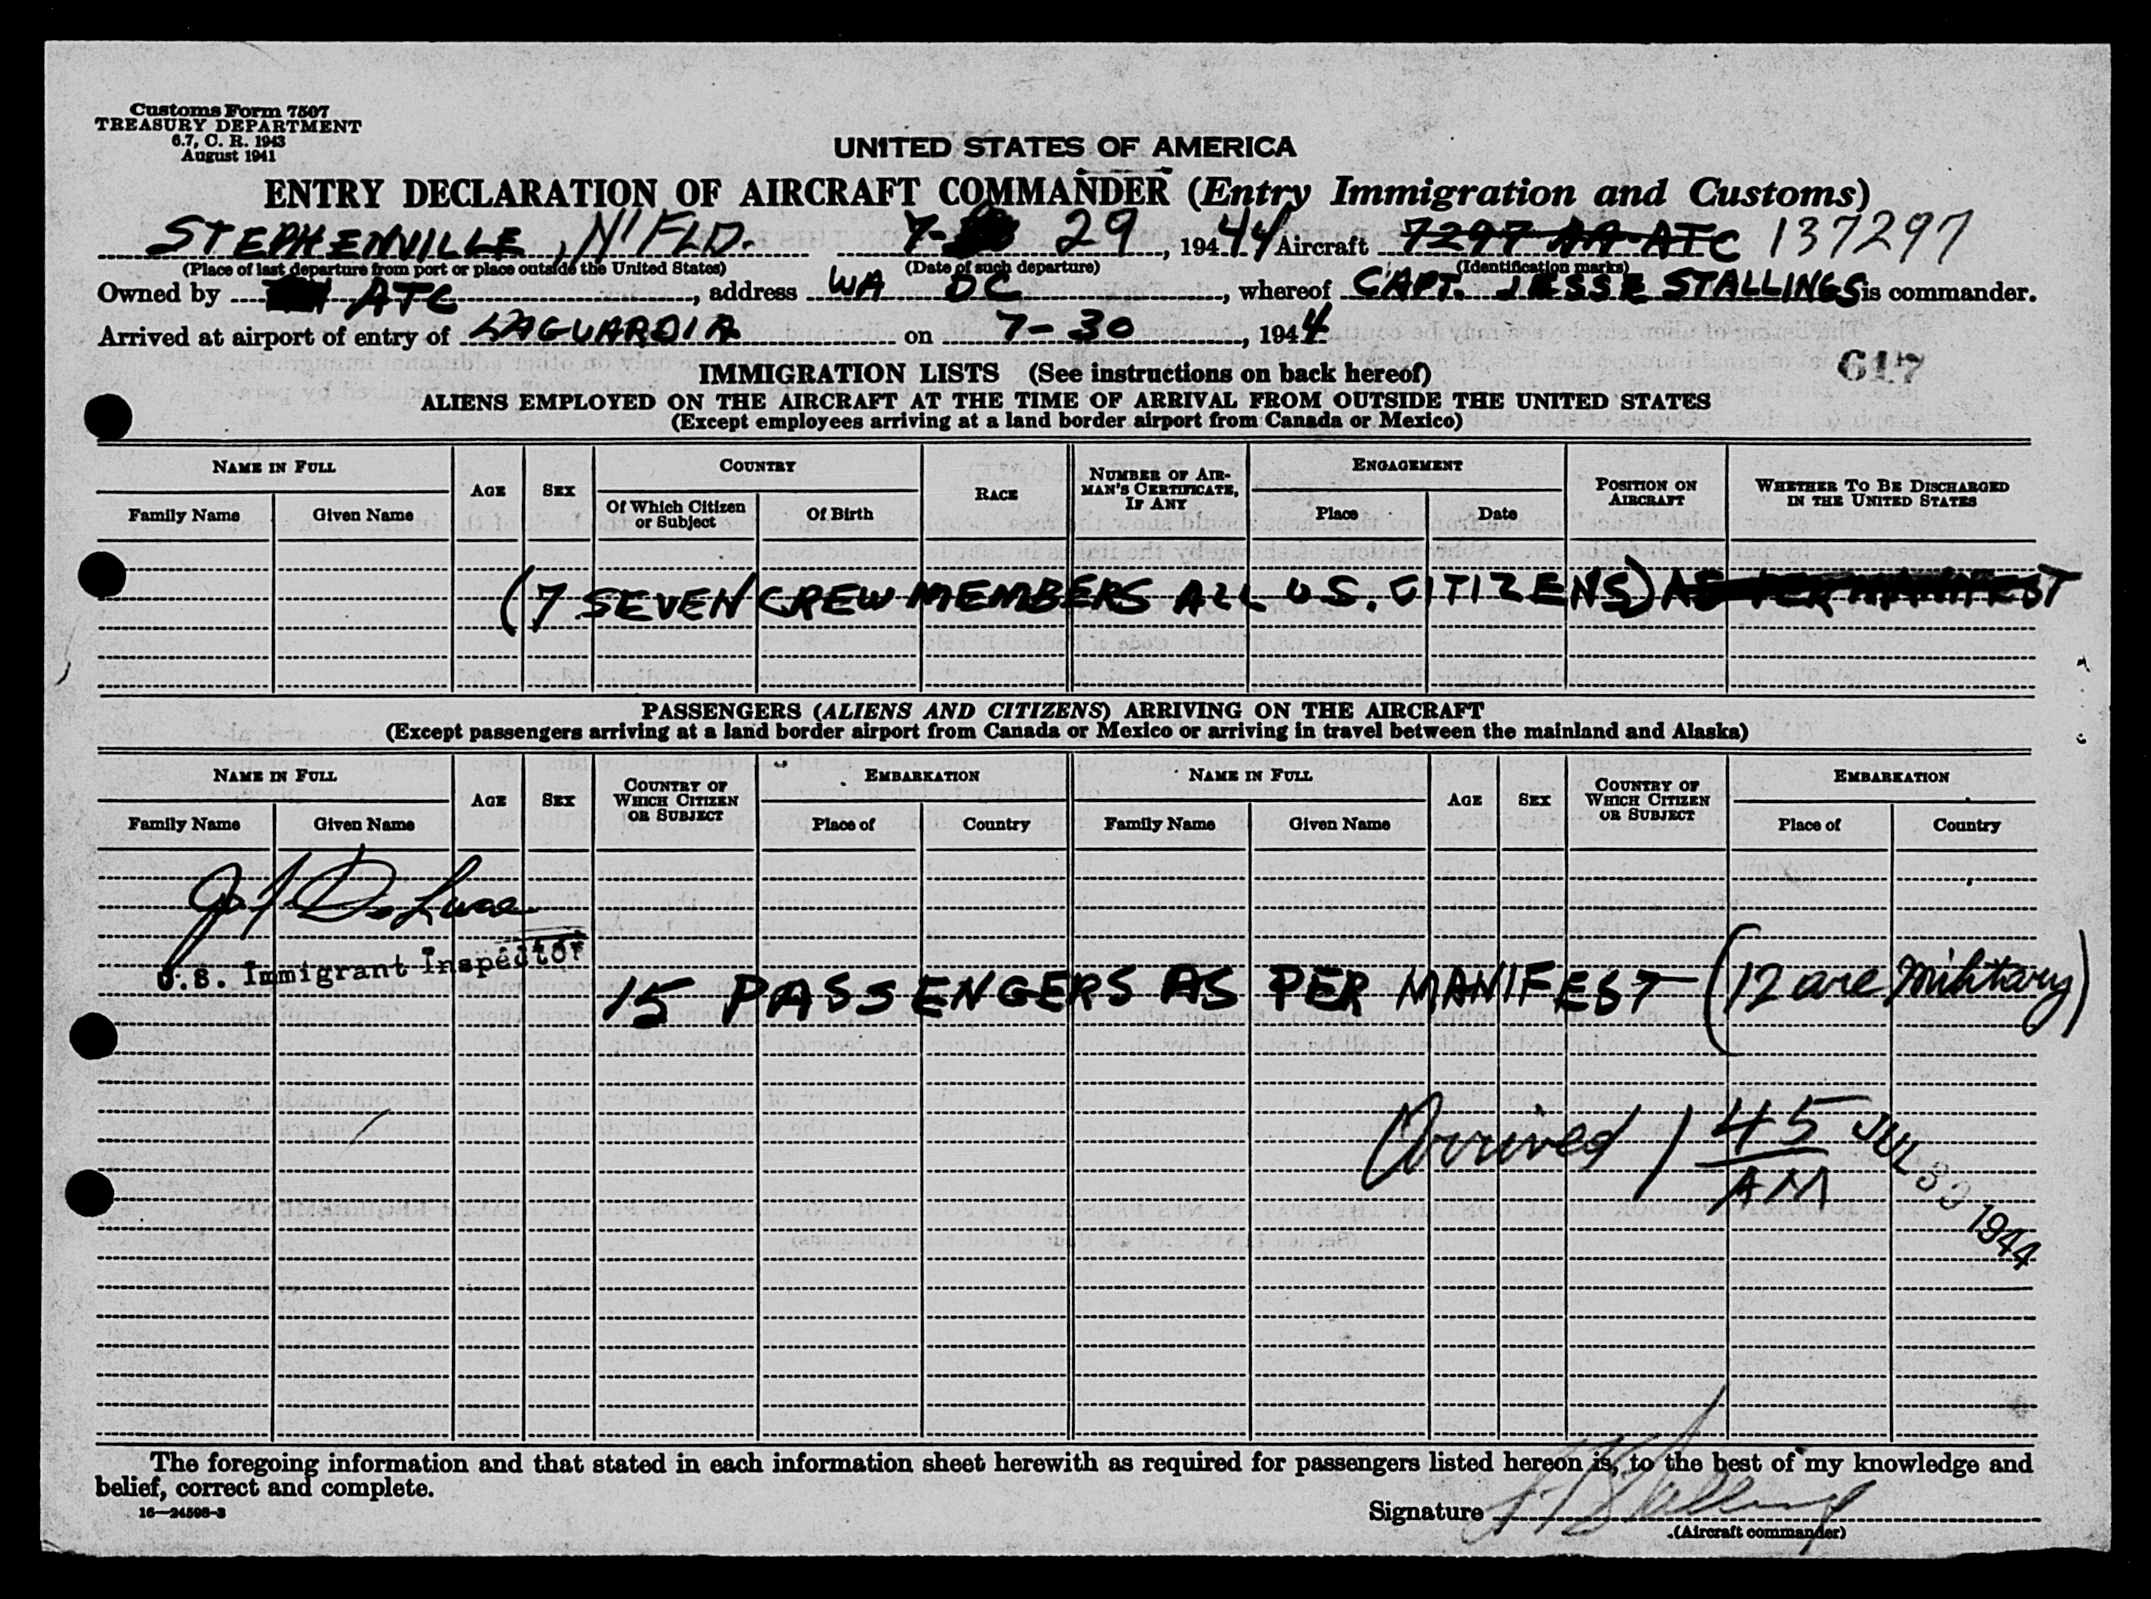 Customs Form 7507
TREASURY DEPARTMENT
6.7, C. R. 1943
August 1941
UNITED STATES OF AMERICA
ENTRY DECLARATION OF AIRCRAFT COMMANDER (Entry Immigration and Customs)
STEPHENVILLE, N'FLD. 7- 29, 1944 Aircraft 7297 AA-ATC 137297
(Place of last departure from port or place outside the United States) (Date of such departure) (Identification marks)
Owned by ATC, address WA DC, whereof CAPT. JESSE STALLINGS is commander.
Arrived at airport of entry of LAGUARDIA on 7-30, 1944
617
IMMIGRATION LISTS (See instructions on back hereof)
ALIENS EMPLOYED ON THE AIRCRAFT AT THE TIME OF ARRIVAL FROM OUTSIDE THE UNITED STATES
(Except employees arriving at a land border airport from Canada or Mexico)
NAME IN FULL AGE SEX COUNTRY RACE NUMBER OF AIRMAN'S CERTIFICATE, IF ANY ENGAGEMENT POSITION ON AIRCRAFT WHETHER TO BE DISCHARGED IN THE UNITED STATES
Family Name Given Name Of Which Citizen or Subject Of Birth Place Date
(7 SEVEN CREW MEMBERS ALL U.S. CITIZENS) AS PER MANIFEST
PASSENGERS (ALIENS AND CITIZENS) ARRIVING ON THE AIRCRAFT
(Except passengers arriving at a land border airport from Canada or Mexico or arriving in travel between the mainland and Alaska)
NAME IN FULL AGE SEX COUNTRY OF WHICH CITIZEN OR SUBJECT EMBARKATION NAME IN FULL AGE SEX COUNTRY OF WHICH CITIZEN OR SUBJECT EMBARKATION
Family Name Given Name Place of Country Family Name Given Name Place of Country
U.S. Immigrant Inspector
15 PASSENGERS AS PER MANIFEST (12 are military)
Arrived 1 45 AM JUL 30 1944
The foregoing information and that stated in each information sheet herewith as required for passengers listed hereon is, to the best of my knowledge and
belief, correct and complete.
16—24598-3
Signature
(Aircraft commander)